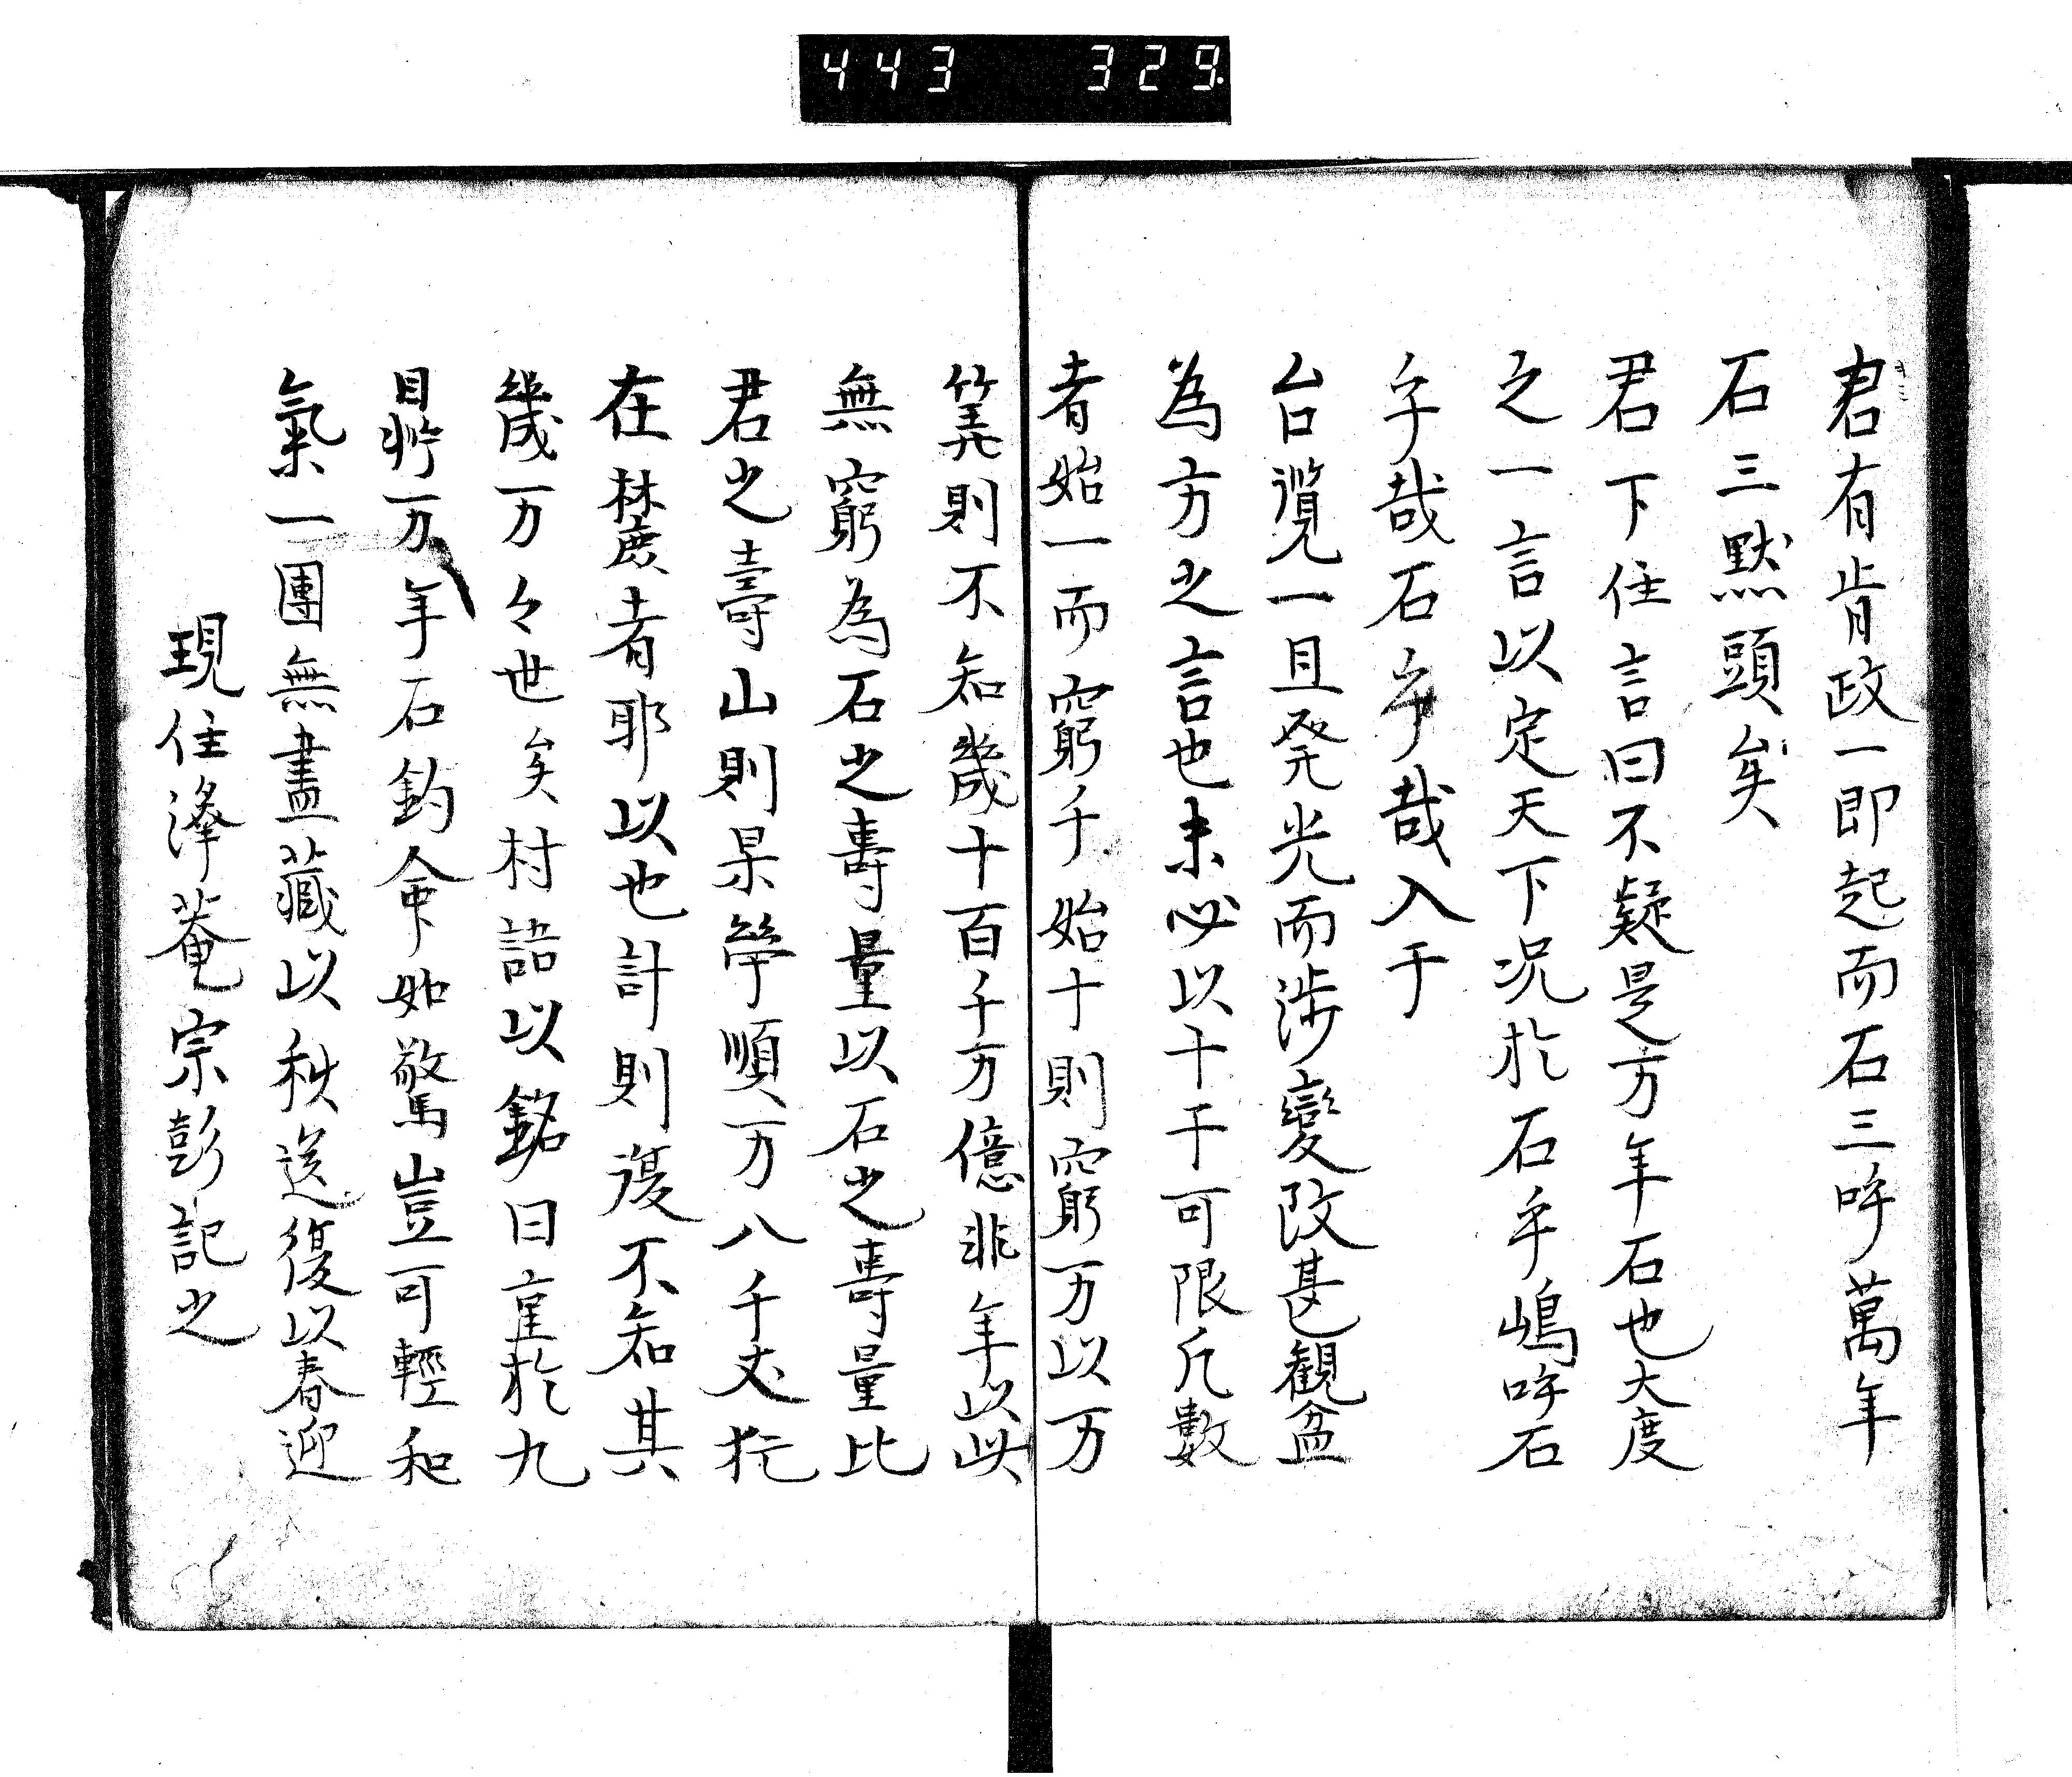 443 329.
君有肯政一即起而石三呼萬年
石三默頭矣
君下住言曰不疑是万年石也大度
之一言以定天下况於石乎嶋呼石
乎哉石乎哉入于
台覧一旦発光而涉變改甚観盆
為万之言也未必以十千可限凡數
者始一而窮千始十則窮万以万
筭則不知幾十百千万億非年以此
無窮為石之壽量以石之壽量比
君之壽山則杲等順一万八千丈於
在麓者耶以也計則復不知其
幾万々世矣村語以銘曰重於九
鼎万年石鈞命如驚豈可輕和
氣一團無盡藏以秋送復以春迎
現住澤菴宗彭記之